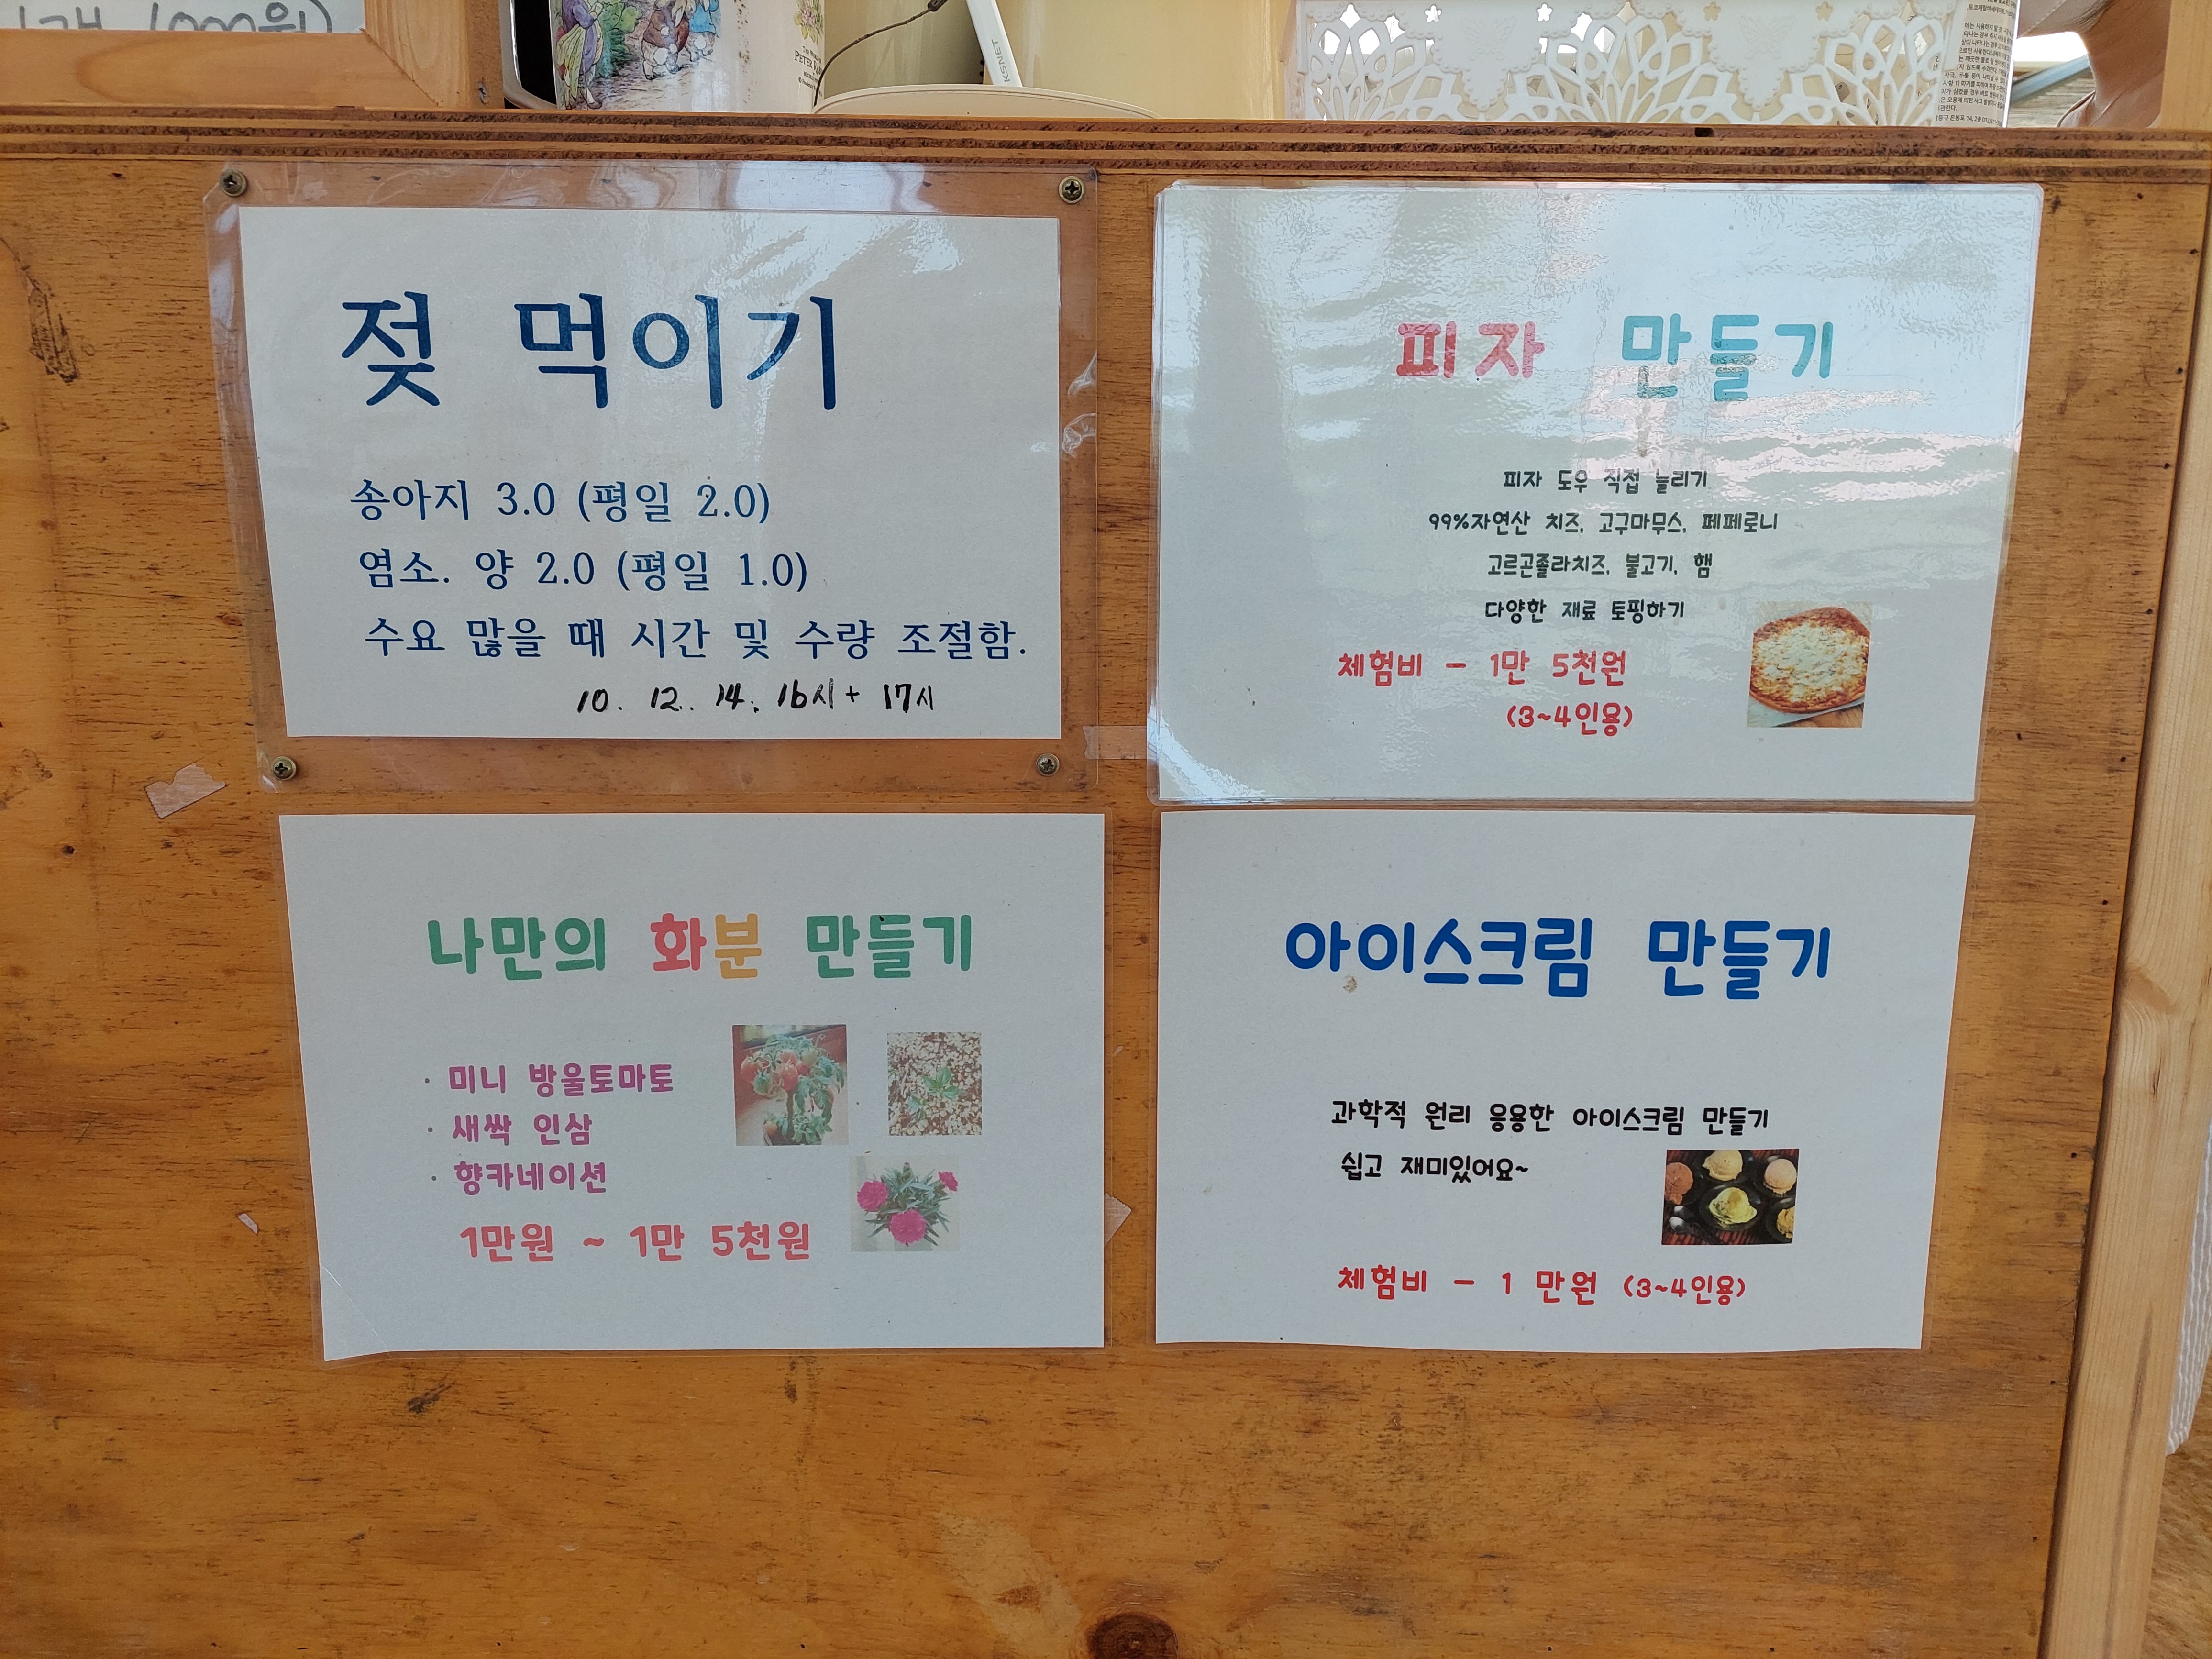 1000원)
PETER
KSNET
젖 먹이기
송아지 3.0 (평일 2.0)
염소. 양 2.0 (평일 1.0)
수요 많을 때 시간 및 수량 조절함.
10. 12. 14. 16시+ 17시
피자 만들기
피자 도우 직접 늘리기
99%자연산 치즈, 고구마무스, 페페로니
고르곤졸라치즈, 불고기, 햄
다양한 재료 토핑하기
체험비 - 1만 5천원
(3~4인용)
나만의 화분 만들기
· 미니 방울토마토
· 새싹 인삼
· 향카네이션
1만원 ~ 1만 5천원
아이스크림 만들기
과학적 원리 응용한 아이스크림 만들기
쉽고 재미있어요~
체험비 - 1 만원 (3~4인용)